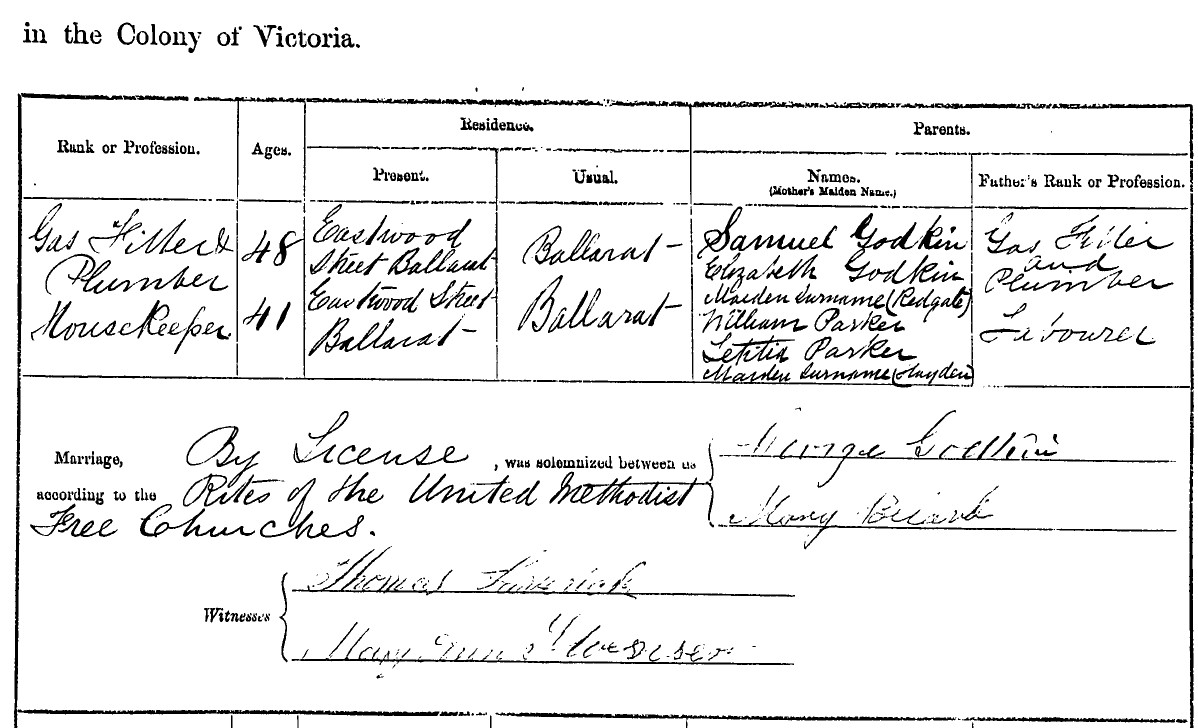 in the Colony of Victoria.
Rank or Profession.
Ages.
Residence.
Present.
Usual.
Parents.
Names.
(Mother's Maiden Name.)
Father's Rank or Profession.
Gas Fitter &
Plumber
48
Eastwood
Street Ballarat
Ballarat
Samuel Godkin
Elizabeth Godkin
Maiden Surname (Redgate)
Gas Fitter
and
Plumber
Housekeeper
41
Eastwood Street
Ballarat
Ballarat
William Parker
Letitia Parker
Maiden Surname (Hayden)
Labourer
Marriage, By License, was solemnized between us
according to the Rites of the United Methodist
Free Churches.
George Godkin
Mary
Witnesses
Thomas
Mary Ann